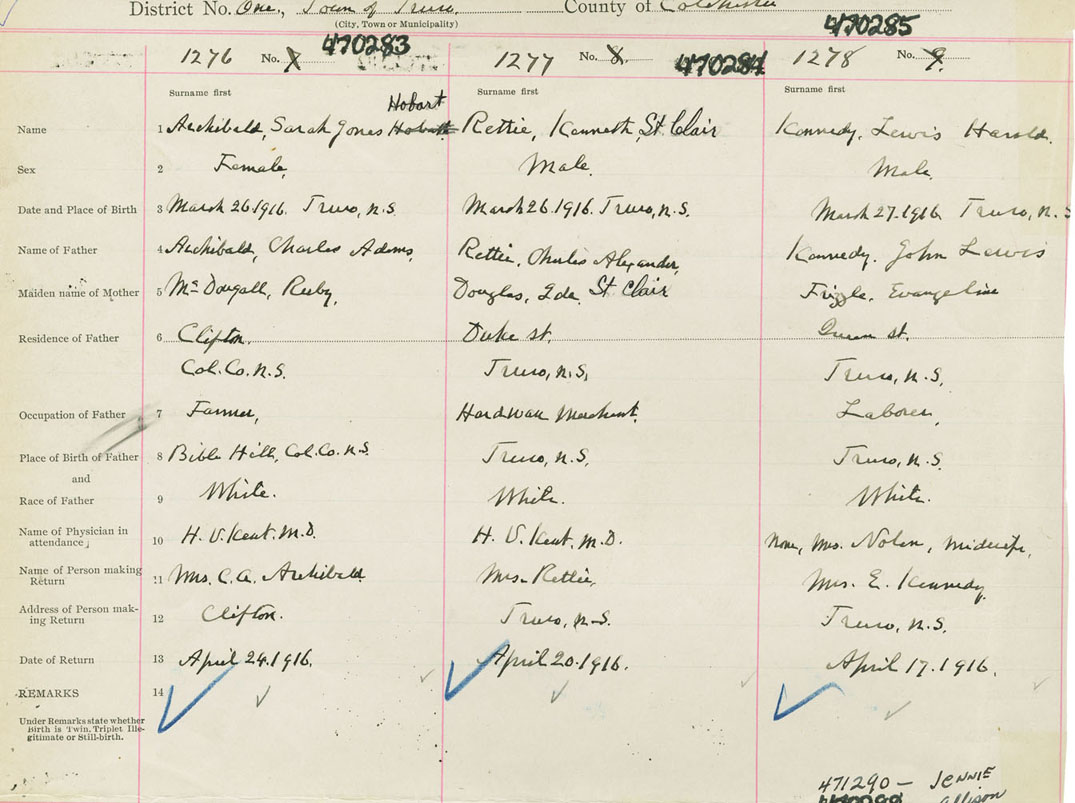 District No. One., Town of Truro County of Colchester
(City, Town or Municipality)
470283 470285
1276 No. 7 1277 No. 8. 470284 1278 No. 9.
Surname first Surname first Surname first
Hobart
Name 1 Archibald, Sarah Jones Hobart Rettie, Kenneth, St Clair Kennedy, Lewis Harold.
Sex 2 Female, Male. Male.
Date and Place of Birth 3 March 26.1916. Truro, N.S. March 26.1916. Truro, N.S. March 27.1916. Truro, N.S
Name of Father 4 Archibald, Charles Adams, Rettie, Charles Alexander, Kennedy, John Lewis
Maiden name of Mother 5 McDougall, Ruby, Douglas, Ida, St Clair Frizzle, Evangeline
Residence of Father 6 Clifton. Duke St. Queen St.
Col. Co. N.S. Truro, N.S, Truro, N.S,
Occupation of Father 7 Farmer, Hardware Merchant, Laborer,
Place of Birth of Father 8 Bible Hill, Col. Co. N.S. Truro, N.S, Truro, N.S.
and
Race of Father 9 White. White. White.
Name of Physician in
attendance 10 H. V. Kent. M.D. H. V. Kent, M.D. None, Mrs. Nolan, Midwife,
Name of Person making
Return 11 Mrs. C. A. Archibald Mrs. Rettie, Mrs. E. Kennedy,
Address of Person mak-
ing Return 12 Clifton. Truro, N.S. Truro, N.S.
Date of Return 13 April 24.1916. April 20.1916. April 17.1916.
REMARKS 14
Under Remarks state whether
Birth is Twin, Triplet Ille-
gitimate or Still-birth.
471290 – JENNIE
Allison